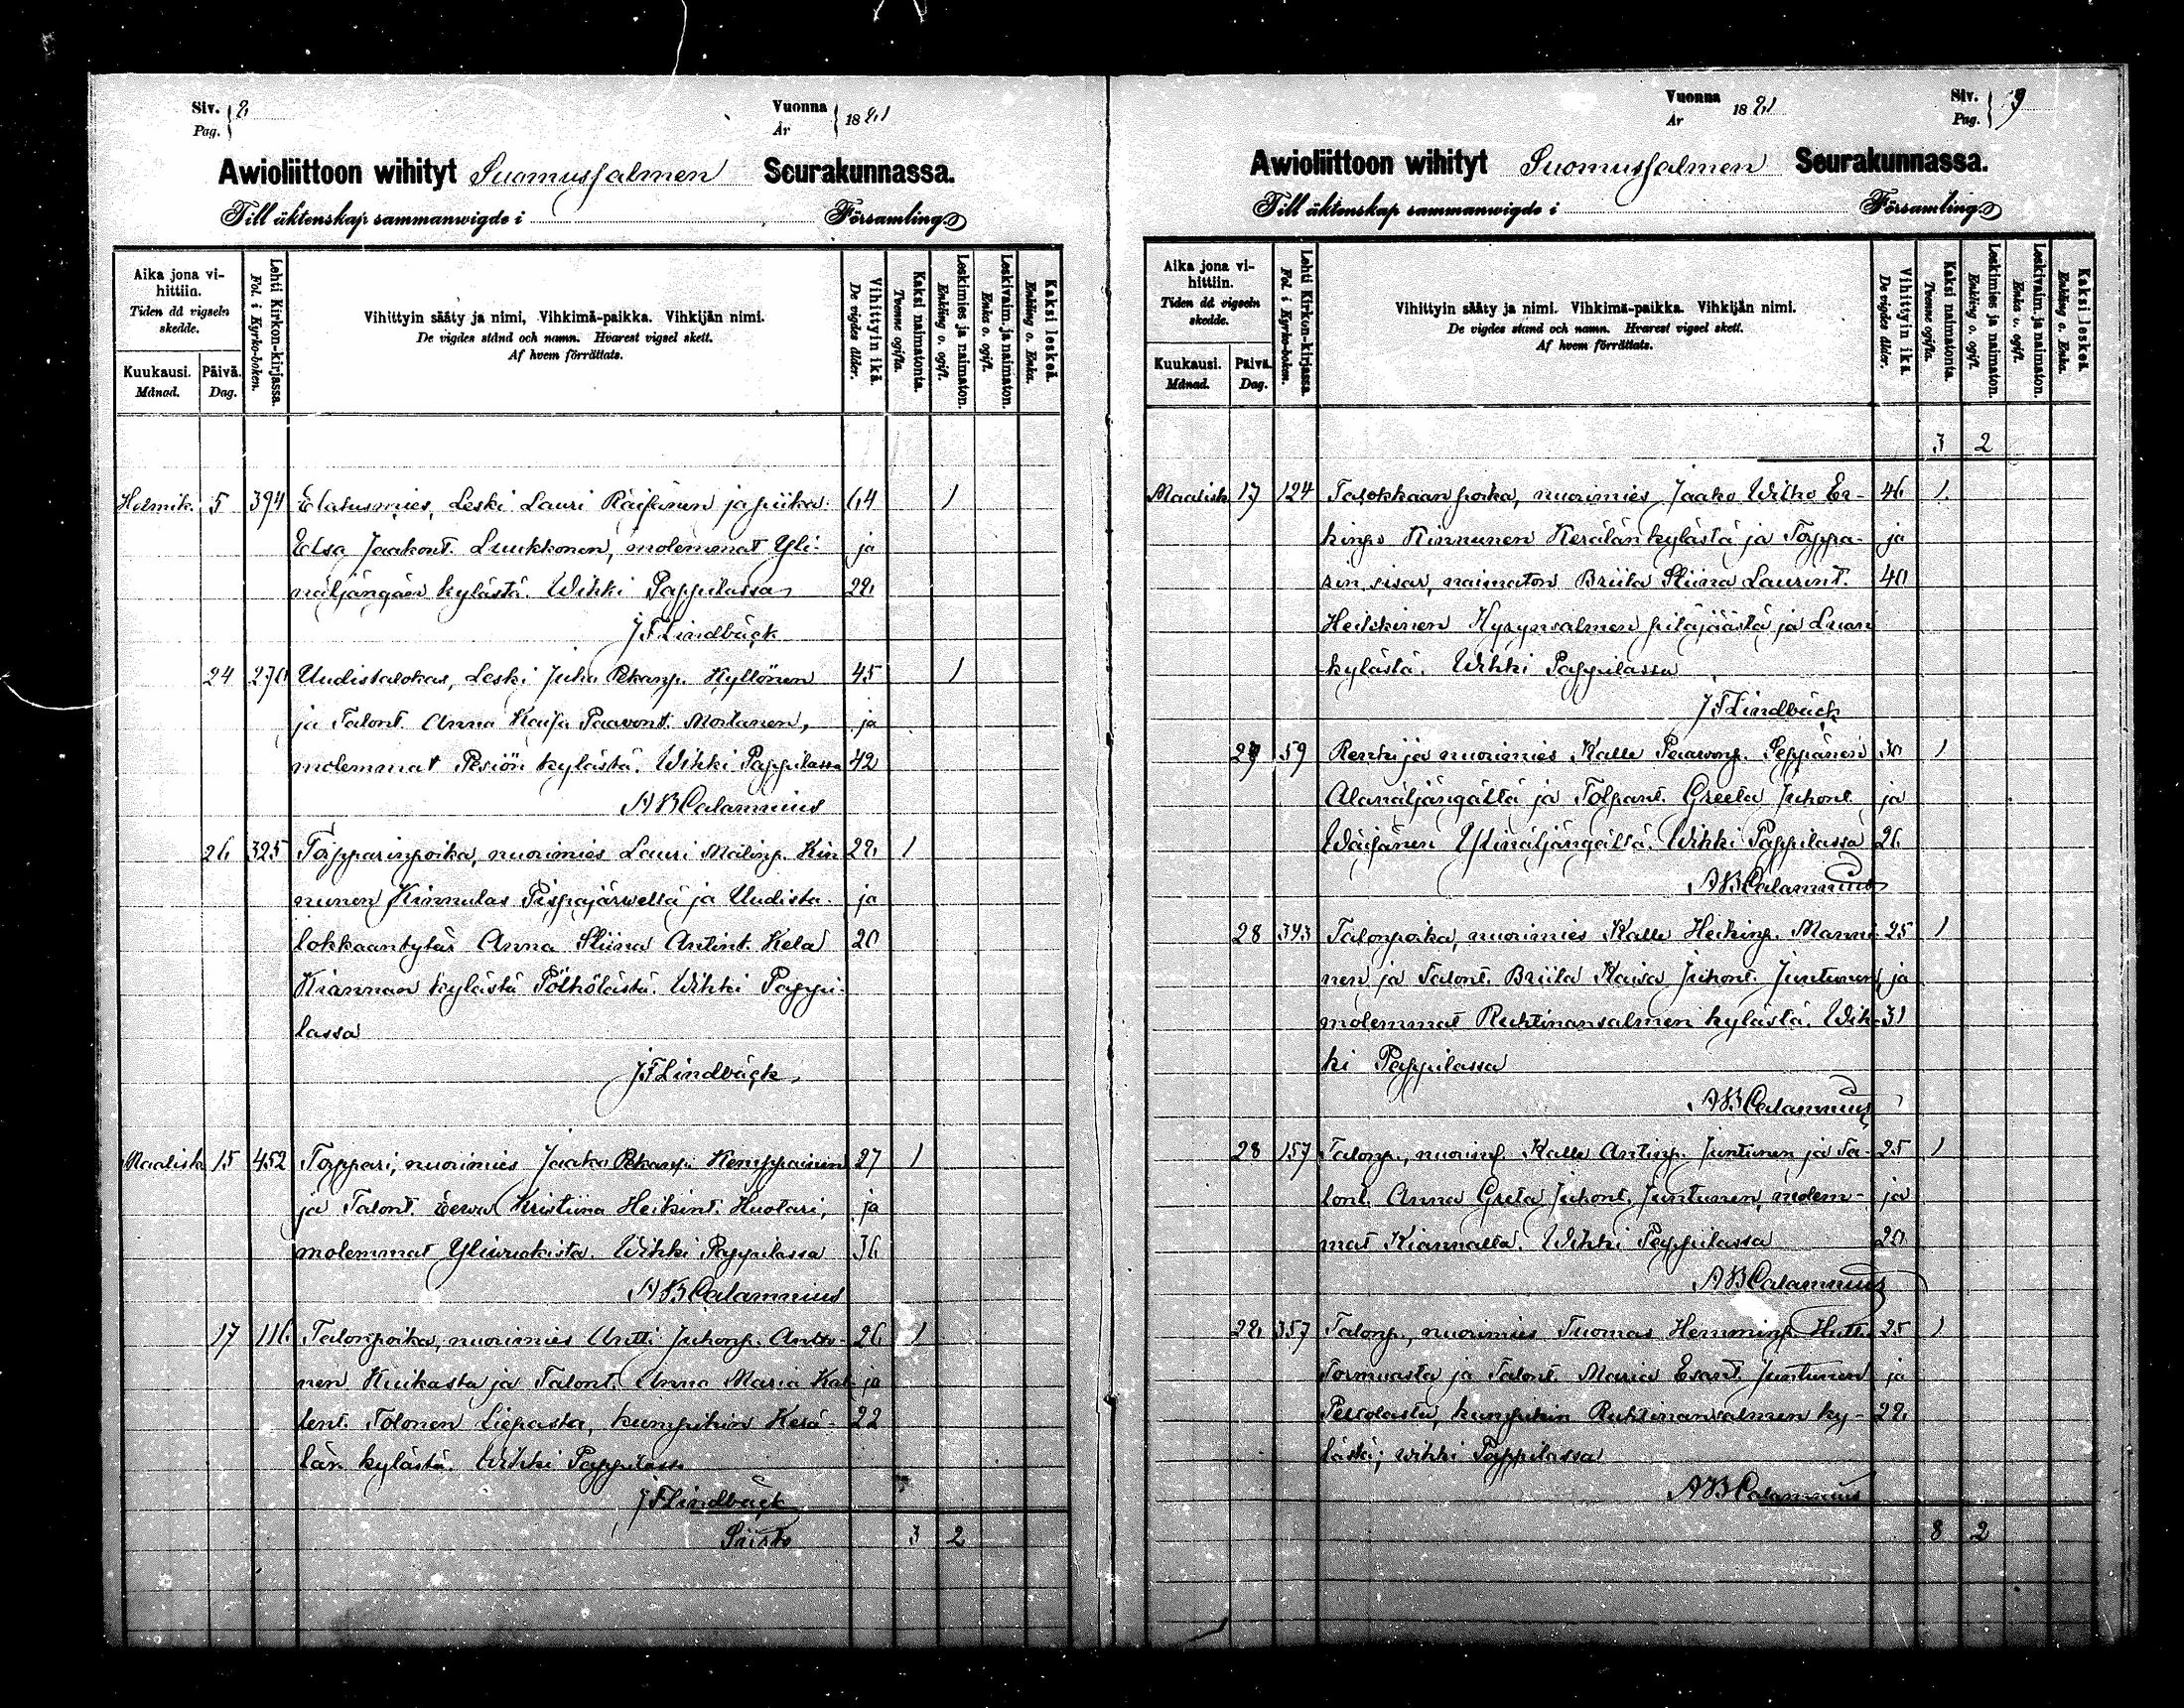 Siv. 8
Pag.
Vuonna
År 1881
Awioliittoon wihityt Suomussalmen Seurakunnassa.
Till äktenskap sammanwigde i Församling
Aika jona vihittiin.
Tiden då vigseln skedde.
Kuukausi.
Månad.
Päivä.
Dag.
Lehti Kirkon-kirjassa.
Fol. i Kyrko-boken.
Vihittyin sääty ja nimi, Vihkimä-paikka. Vihkijän nimi.
De vigdes stånd och namn. Hvarest vigsel skett.
Af hvem förrättats.
Vihittyin ikä.
De vigdes ålder.
Kaksi naimatonta.
Tvenne ogifta.
Leskimies ja naimaton.
Enkling o. ogift.
Leskivaim. ja naimaton.
Enka o. ogift.
Kaksi leskeä.
Enkling o. Enka.
Helmik. 5 394 Elatusmies, Leski Lauri Räisänen ja piika 64 1
Elsa Jaakont. Luukkonen, molemmat Yli- ja
näljängän kylästä. Wihki Pappilassa 28
JFLindbäck
24 270 Uudistalokas, Leski Juho Pekanp. Kyllönen 45 1
ja Talont. Anna Kaisa Paavont. Moilanen, ja
molemmat Pesiön kylästä. Wihki Pappilassa 42
ABCalamnius
26 325 Torpparinpoika, nuorimies Lauri Matinp. Kin 28 1
nunen Kinnulas Pispajärweltä ja Uudista- ja
lokkaantytär Anna Stiina Antint. Kela 20
Kiannan kylästä Pölhölästä. Wihki Pappi-
lassa
JFLindbäck
Maalisk 15 452 Torppari, nuorimies Jaako Pekanp. Kemppainen 27 1
ja Talont. Eewa Kristiina Heikint. Huotari, ja
molemmat Yliwuokista. Wihki Pappilassa 36
ABCalamnius
17 116 Talonpoika, nuorimies Antti Juhonp. Antto- 26 1
nen Kuikasta ja Talont. Anna Maria Kal- ja
lent. Tolonen Liepasta, kumpikin Kerä- 22
län kylästä. Wihki Pappilassa
JFLindbäck
Siirto 3 2
Vuonna
År 1881
Siv. 9
Pag.
Awioliittoon wihityt Suomussalmen Seurakunnassa.
Till äktenskap sammanwigde i Församling
Aika jona vihittiin.
Tiden då vigseln skedde.
Kuukausi.
Månad.
Päivä.
Dag.
Lehti Kirkon-kirjassa.
Fol. i Kyrko-boken.
Vihittyin sääty ja nimi. Vihkimä-paikka. Vihkijän nimi.
De vigdes stånd och namn. Hvarest vigsel skett.
Af hvem förrättats.
Vihittyin ikä.
De vigdes ålder.
Kaksi naimatonta.
Tvenne ogifta.
Leskimies ja naimaton.
Enkling o. ogift.
Leskivaim. ja naimaton.
Enka o. ogift.
Kaksi leskeä.
Enkling o. Enka.
3 2
Maalisk 17 124 Talokkaan poika, nuorimies Jaako Wilho Er- 46 1
kinp. Kinnunen Kerälänkylästä ja Torppa- ja
rin sisar, naimaton Briita Stiina Laurint. 40
Heikkinen Hyrynsalmen pitäjäästä ja Luan
kylästä. Wihki Pappilassa
JFLindbäck
59 Renki ja nuorimies Kalle Paavonp. Seppänen 30 1
Alanäljängältä ja Tolpant. Greeta Juhont. ja
Wäisänen Ylinäljängältä. Wihki Pappilassa 26
ABCalamnius
28 343 Talonpoika, nuorimies Kalle Heikinp. Manni- 25 1
nen ja Talont. Briita Kaisa Juhont. Juntunen, ja
molemmat Ruhtinansalmen kylästä. Wih- 31
ki Pappilassa
ABCalamnius
28 157 Talonp., nuorimp. Kalle Antinp. Juntunen ja Ta- 25 1
lont. Anna Greta Juhont. Juntunen, molem- ja
mat Kiannalta. Wihki Pappilassa 20
ABCalamnius
28 357 Talonp., nuorimies Tuomas Hemminp. Hutt 25 1
Tormuasta ja Talont. Maria Esant. Juntunen ja
kumpikin Ruhtinansalmen ky- 28
lästä; wihki Pappilassa
ABCalamnius
8 2